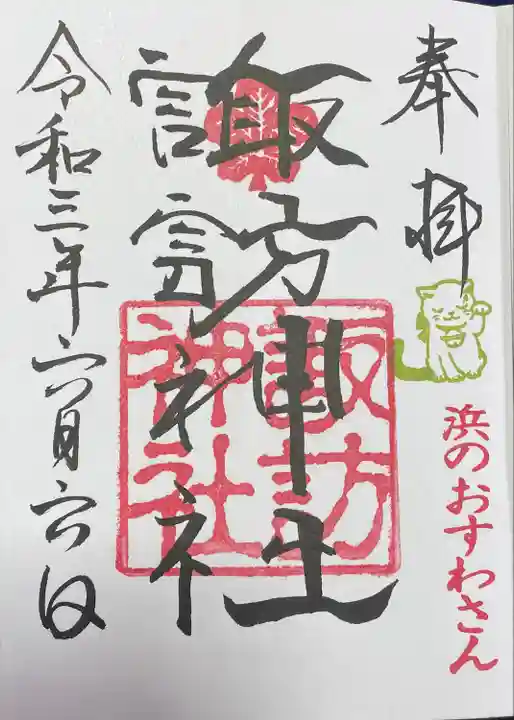 奉拝
浜のおすわさん
諏訪神社
諏訪神社
令和三年六月六日